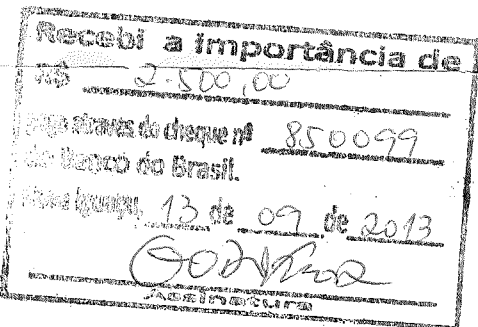 Recebi a importância de
R$ 2.500,00
pago através do cheque nº 850099
do Banco do Brasil.
Nova Iguaçu, 13 de 09 de 2013
Assinatura